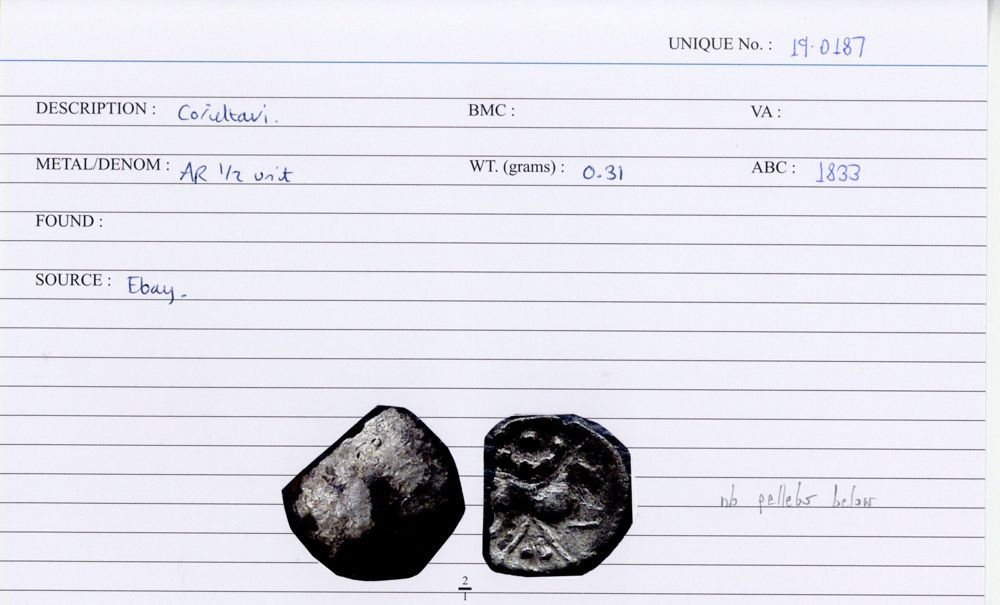 UNIQUE No. : 19.0187
DESCRIPTION : Corieltavi. BMC : VA :
METAL/DENOM : AR 1/2 unit WT. (grams) : 0.31 ABC : 1833
FOUND :
SOURCE : Ebay.
nb pellets below
2
1